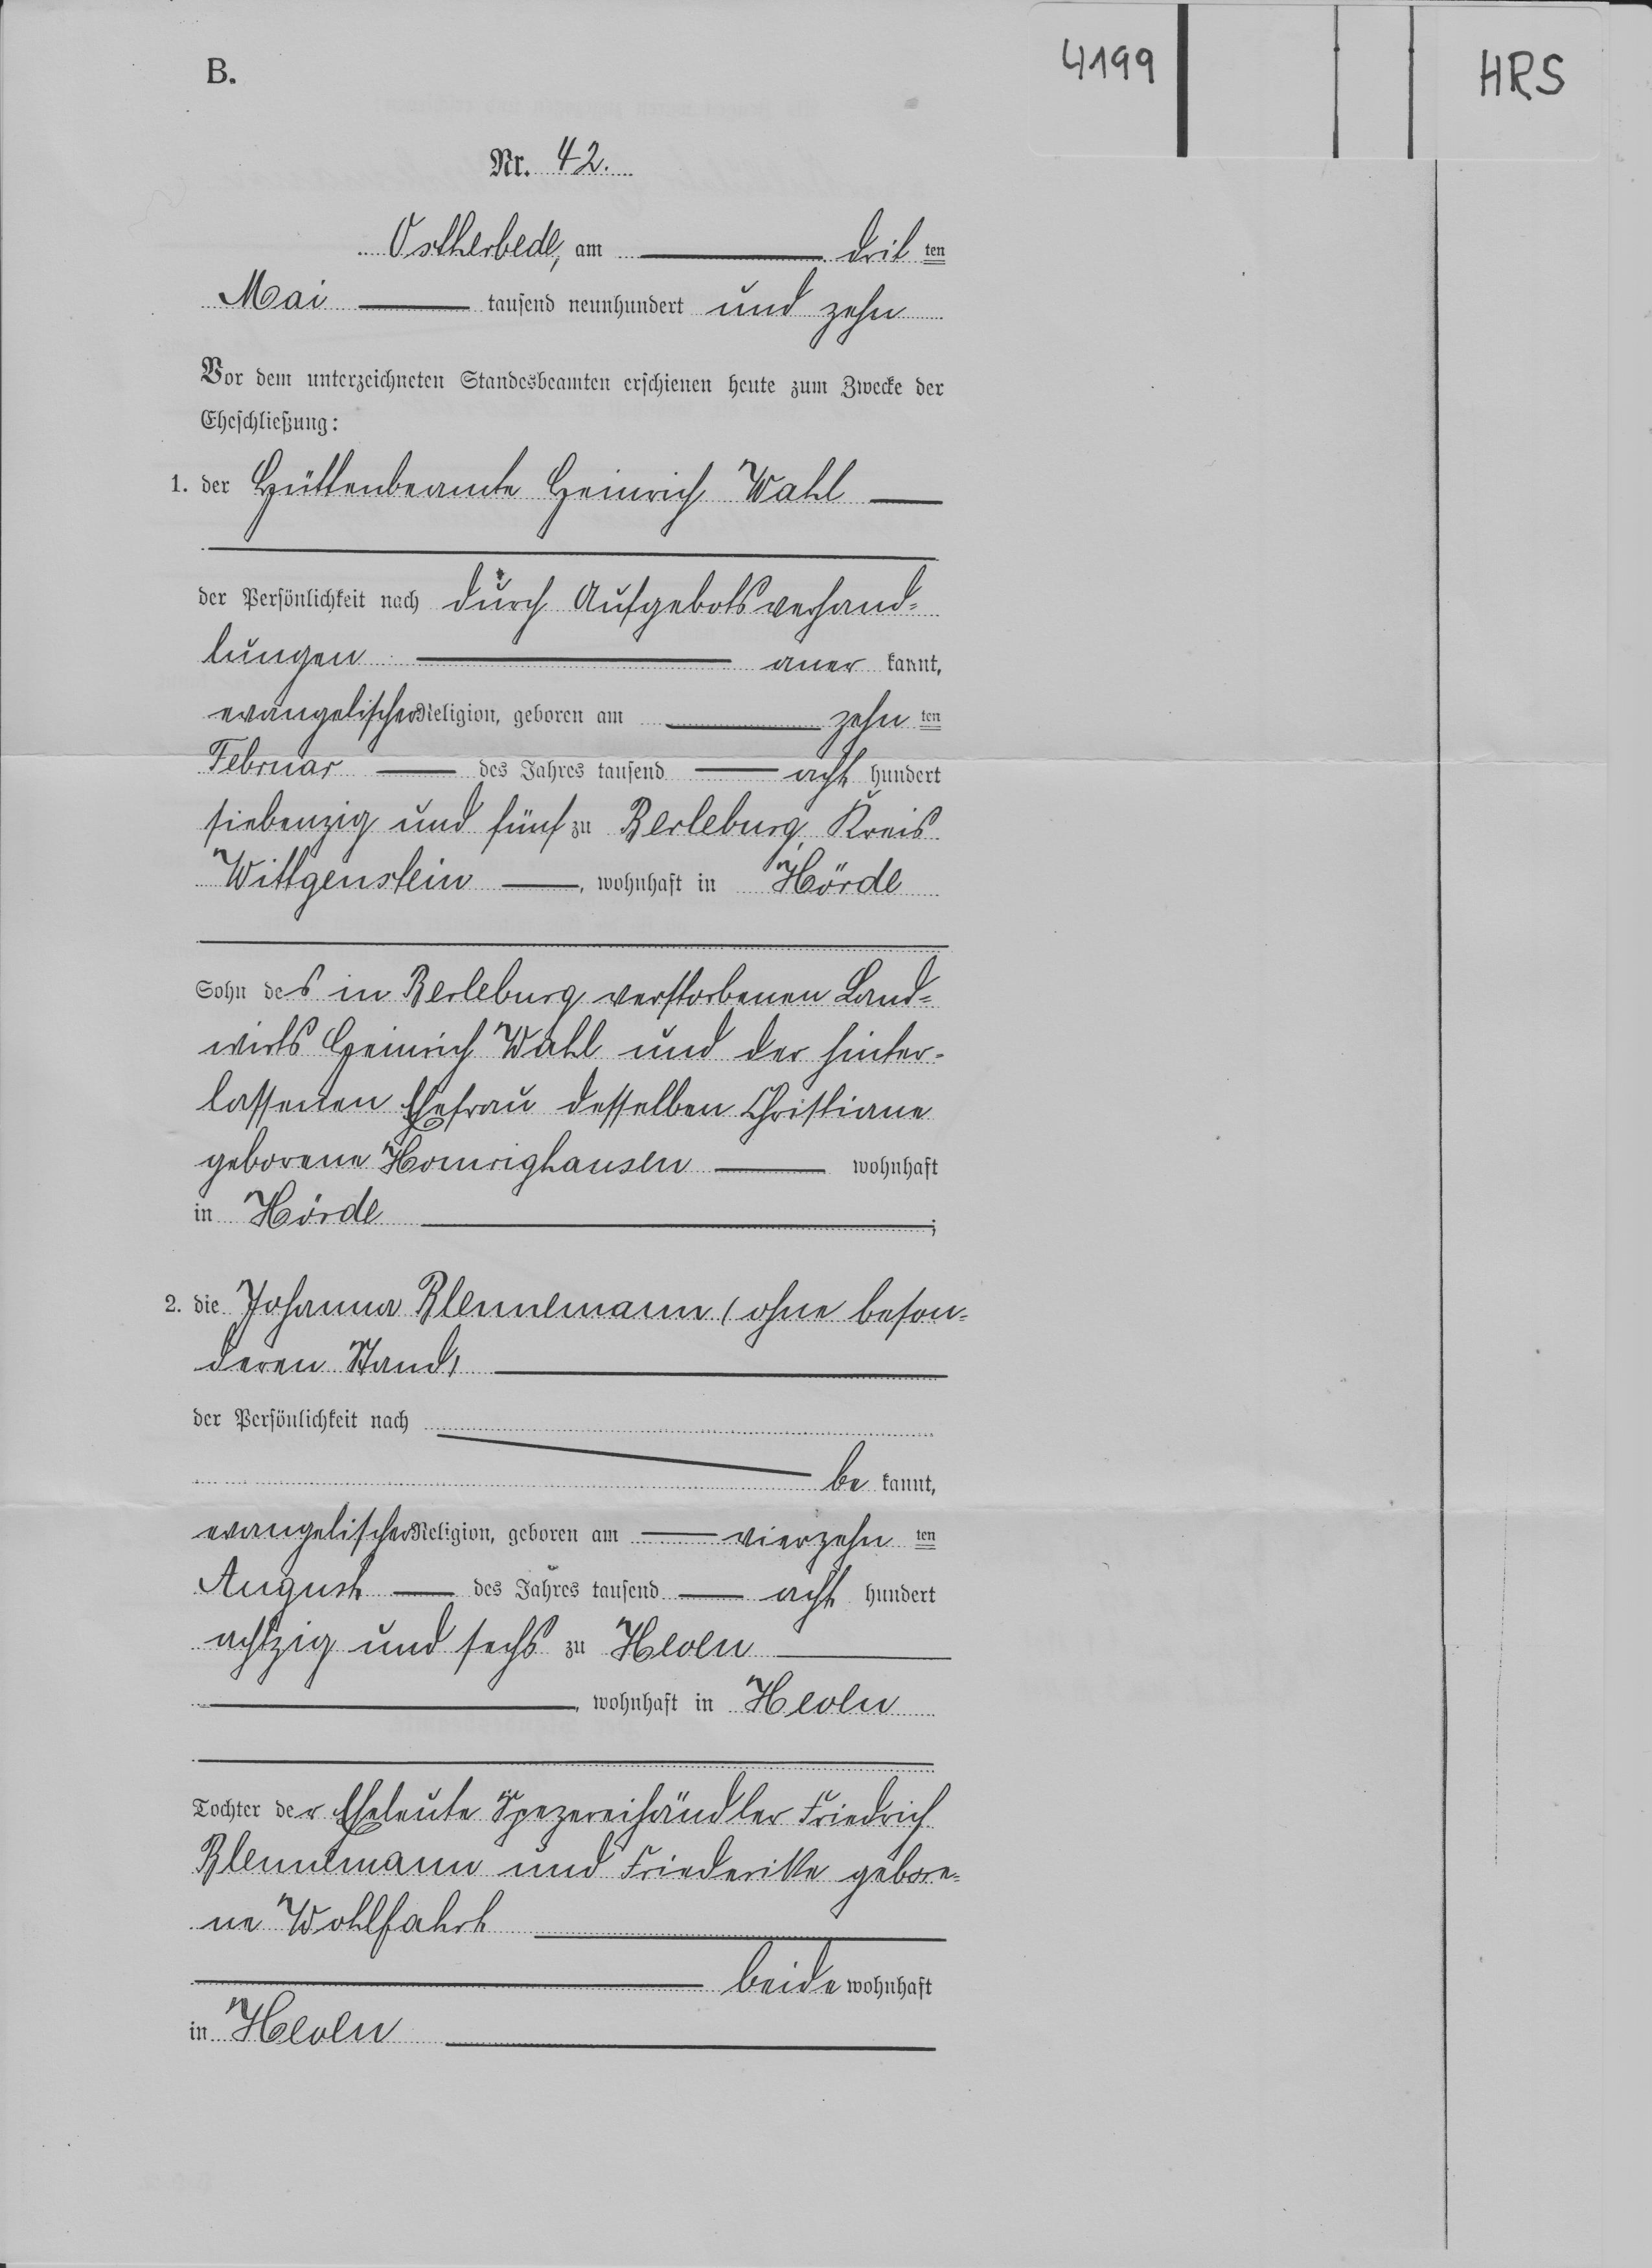 B.
4199
HRS
Nr. 42.
Ostherbede, am drit ten
Mai tausend neunhundert und zehn
Vor dem unterzeichneten Standesbeamten erschienen heute zum Zwecke der
Eheschließung:
1. der Hüttenbeamte Heinrich Wahl
der Persönlichkeit nach durch Aufgebotsverhand-
lungen aner kannt,
evangelischer Religion, geboren am zehn ten
Februar des Jahres tausend acht hundert
siebenzig und fünf zu Berleburg, Kreis
Wittgenstein, wohnhaft in Hörde
Sohn des in Berleburg verstorbenen Land-
wirts Heinrich Wahl und der hinter-
lassenen Ehefrau desselben Christiane
geborene Homrighausen wohnhaft
in Hörde ;
2. die Johanna Blennemann (ohne beson-
deren Stand)
der Persönlichkeit nach
be kannt,
evangelischer Religion, geboren am vierzehn ten
August des Jahres tausend acht hundert
achtzig und sechs zu Heven
, wohnhaft in Heven
Tochter der Eheleute Spezereihändler Friedrich
Blennemann und Friederike gebore-
ne Wohlfahrt
beide wohnhaft
in Heven